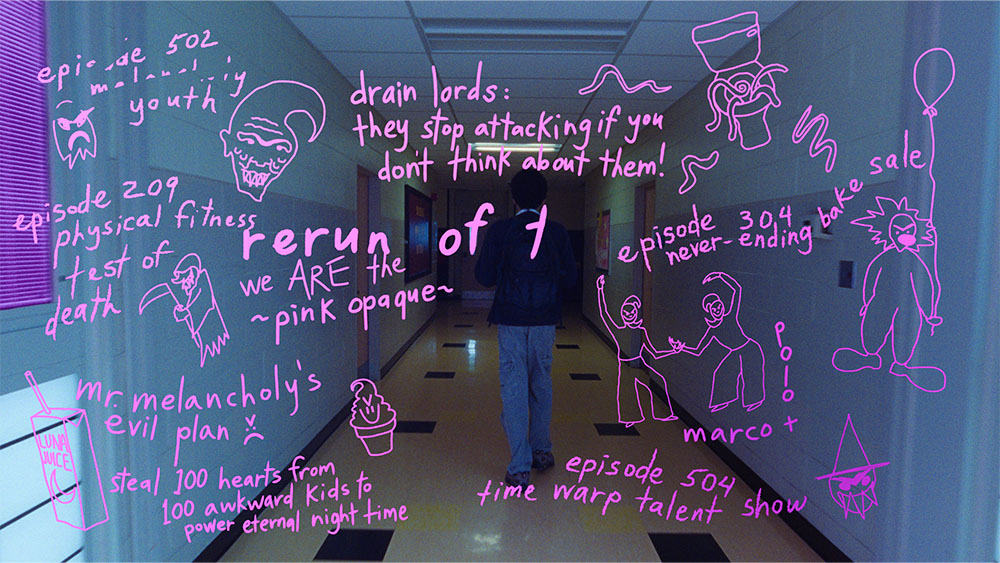 episode 502
youth
drain lords:
they stop attacking if you
don't think about them!
bake sale
episode 209
physical fitness
test of
death
rerun of
we ARE the
~pink opaque~
episode 304
never-ending
polo
marco +
mr. melancholy's
evil plan
LUNA
JUICE
steal 100 hearts from
100 awkward kids to
power eternal night time
episode 504
time warp talent show